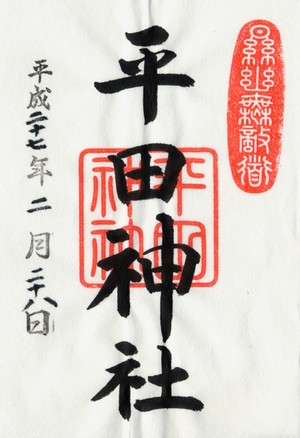 幽無敵道
平田神社
平田
神社
平成二十七年二月二十八日